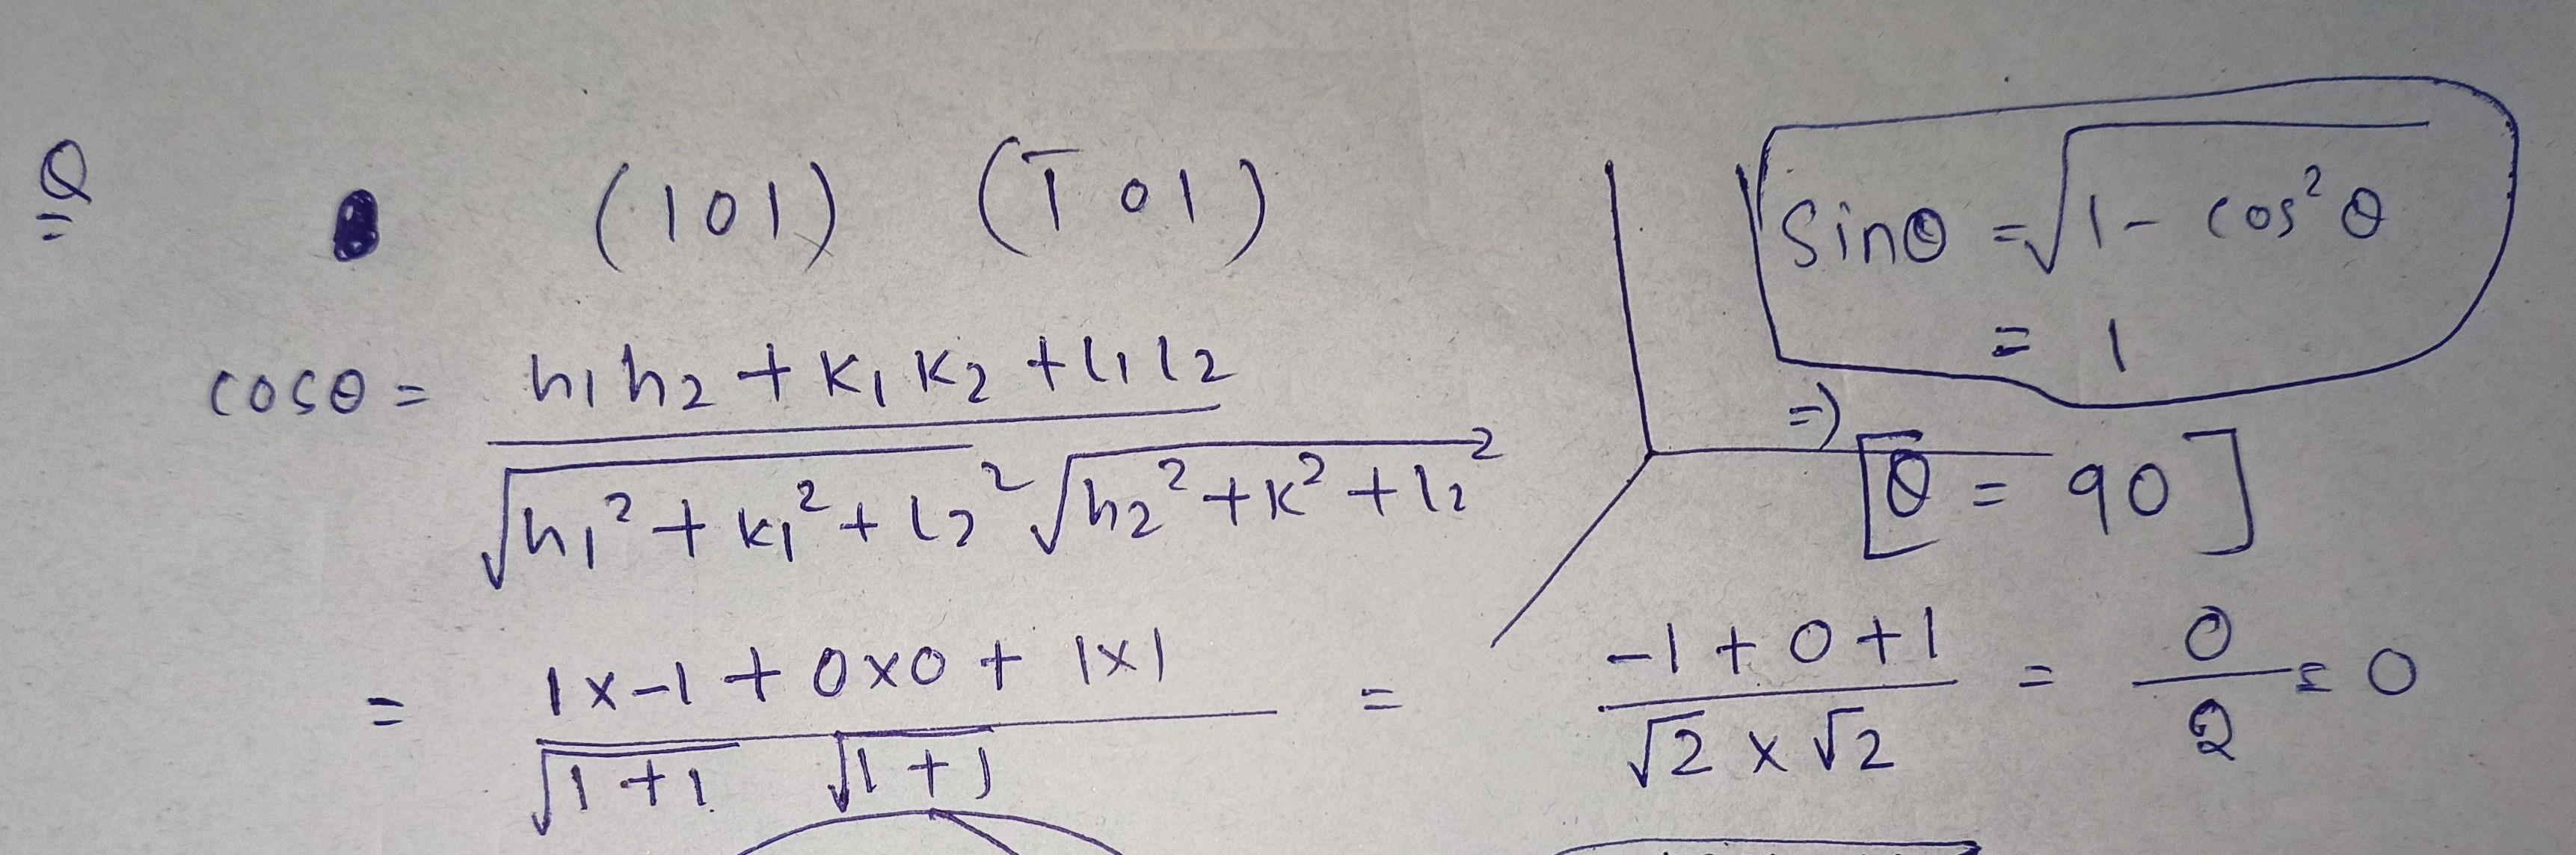 Q
(101) (1̅01)
cosθ = h₁h₂ + k₁k₂ + l₁l₂ / √h₁² + k₁² + l₂² √h₂² + k² + l₂²
= 1×-1 + 0×0 + 1×1 / √1+1 √1+1 = -1+0+1 / √2 × √2 = 0/2 = 0
Sinθ = √1 - cos²θ
= 1
⇒ [θ = 90]